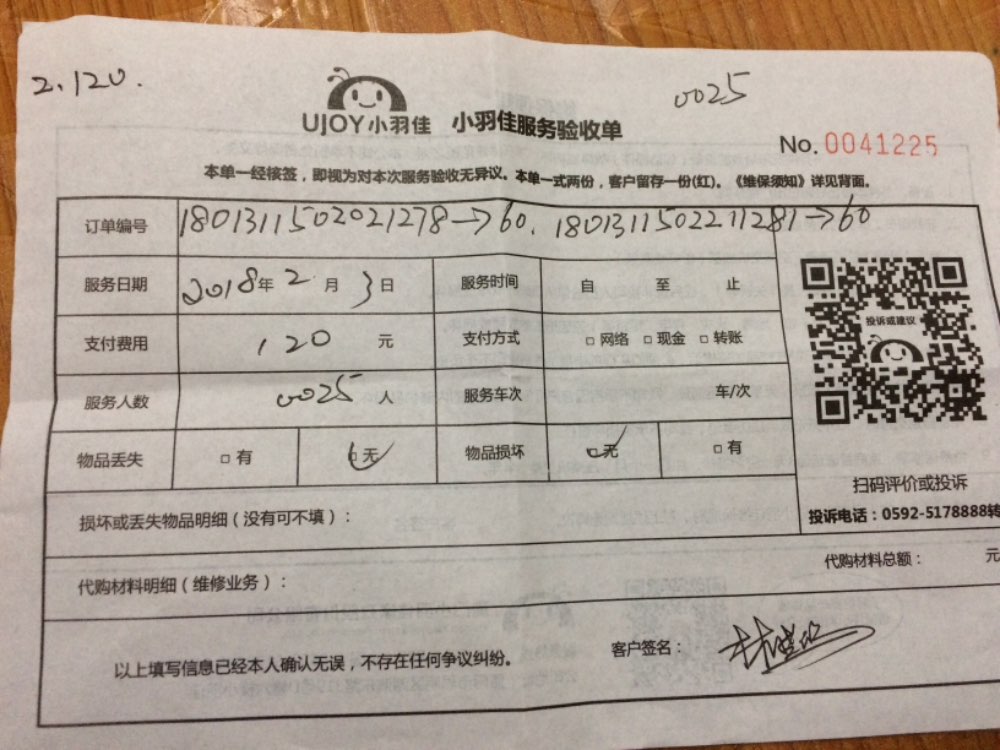 2.120.
0025
UJOY小羽佳 小羽佳服务验收单
No.0041225
本单一经核签，即视为对本次服务验收无异议。本单一式两份，客户留存一份(红)。《维保须知》详见背面。
订单编号 1801311502021278→60. 1801311502211281→60
服务日期 2018年2月3日 服务时间 自 至 止
投诉或建议
支付费用 120 元 支付方式 □网络 □现金 □转账
服务人数 0025人 服务车次 车/次
物品丢失 □有 □无 物品损坏 □无 □有
扫码评价或投诉
损坏或丢失物品明细（没有可不填）：
投诉电话：0592-5178888转
代购材料明细（维修业务）： 代购材料总额： 元
以上填写信息已经本人确认无误，不存在任何争议纠纷。 客户签名：